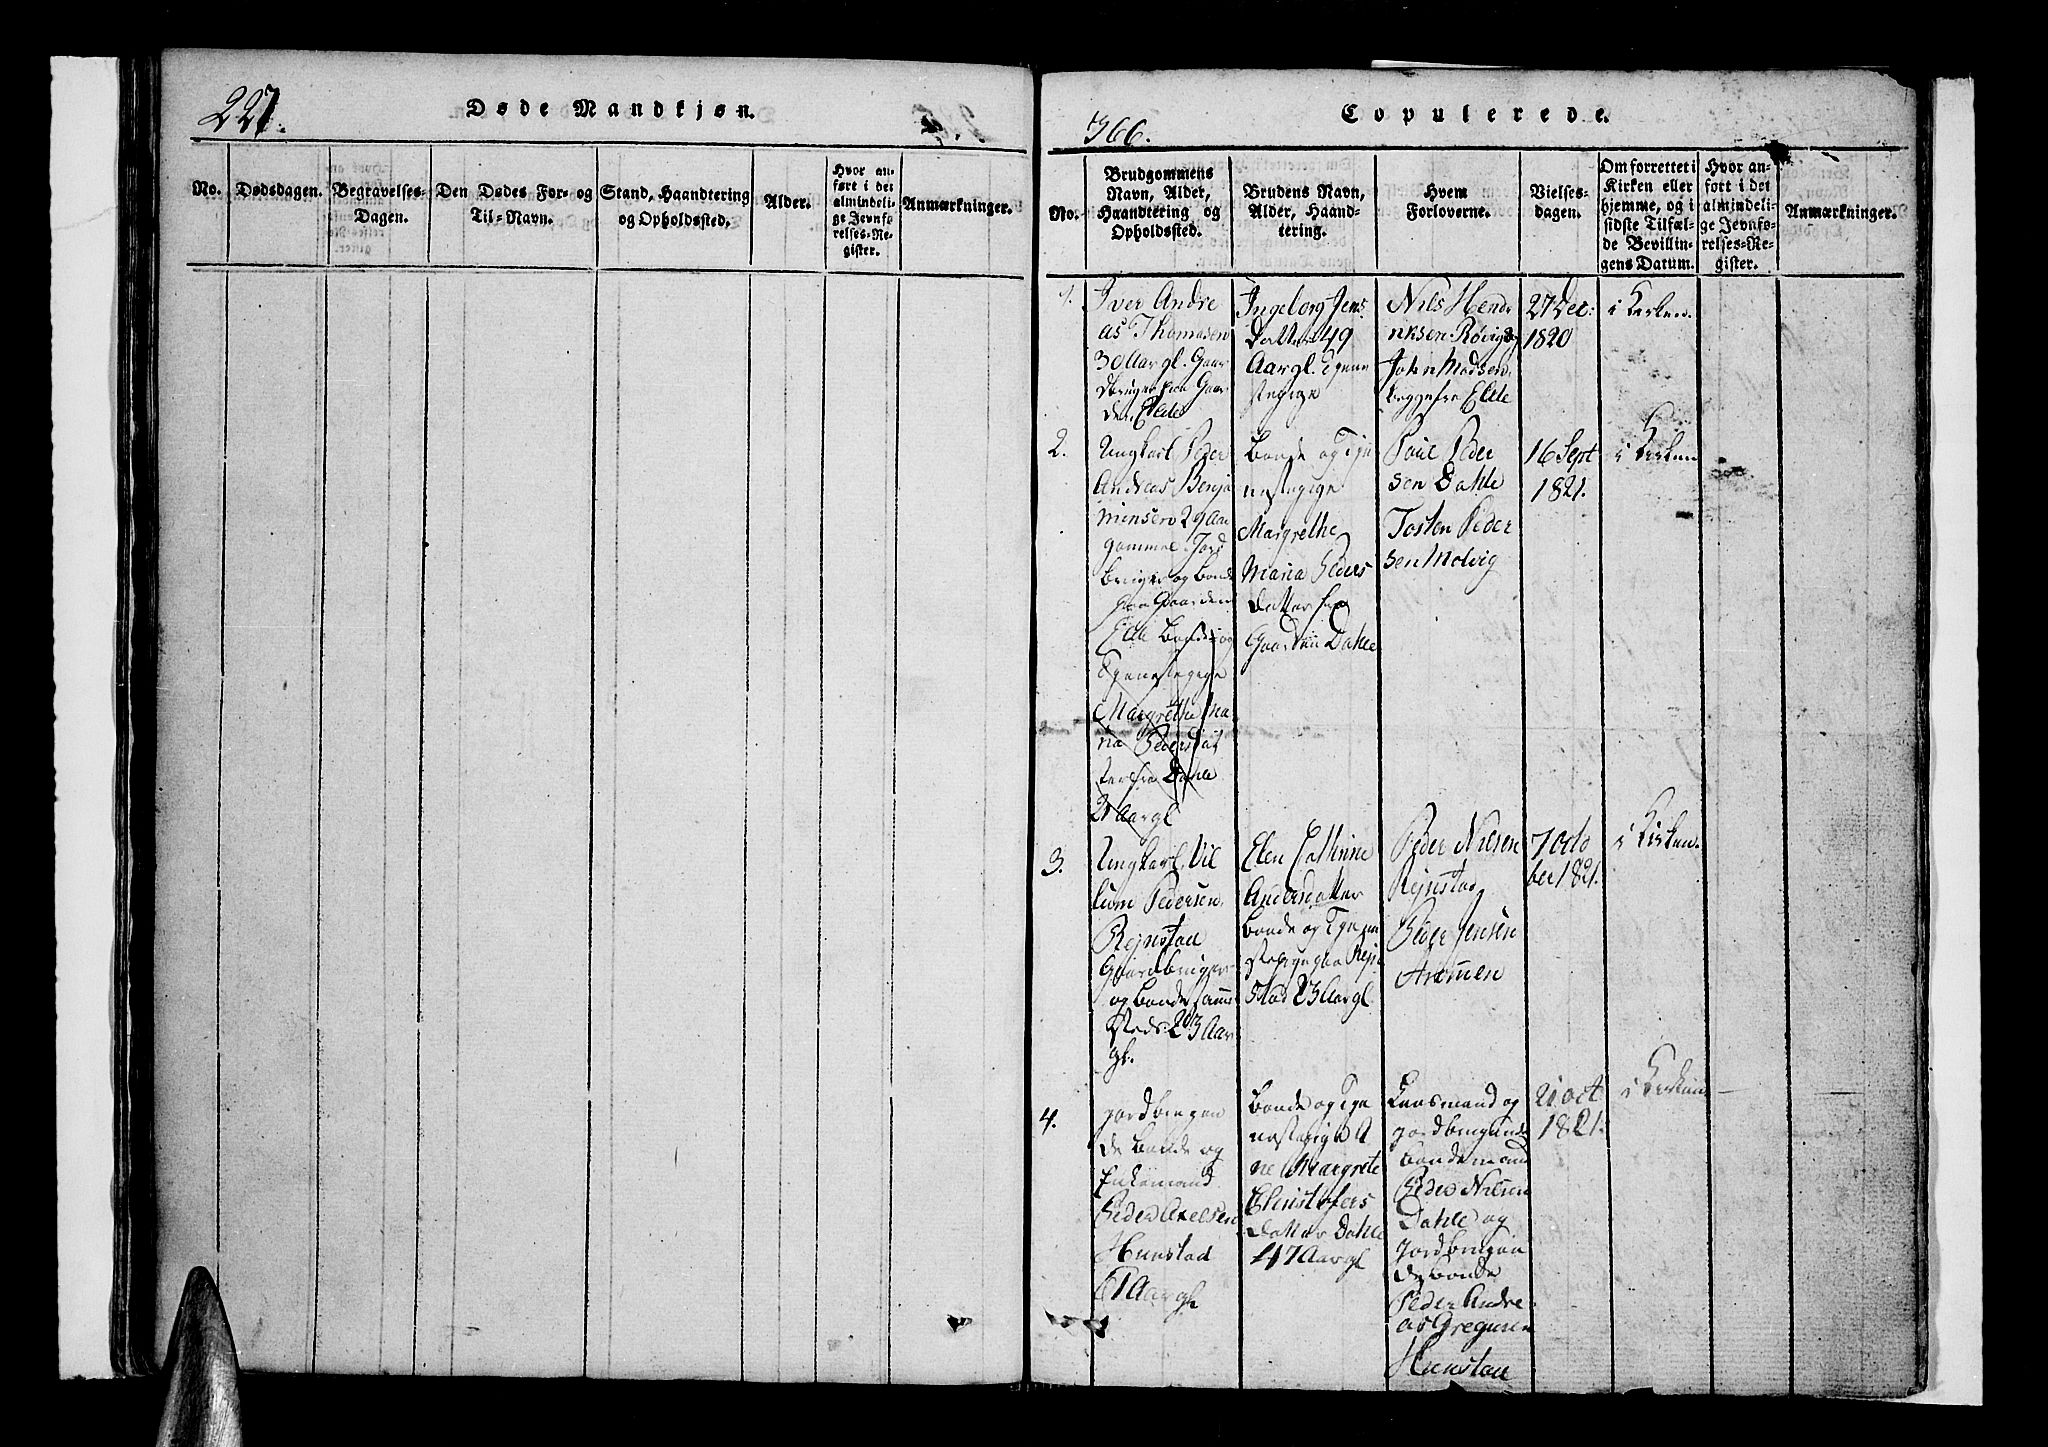 227.
Døde Mandkjøn.
No.
Dødsdagen.
Begravelses-
Dagen.
Den Dødes For- og
Til-Navn.
Stand, Haandtering
og Opholdssted.
Alder.
Hvor an-
ført i det
almindeli-
ge Jevnfø-
relses-Re-
gister.
Anmærkninger.
366.
Copulerede.
No.
Brudgommens
Navn, Alder,
Haandtering og
Opholdssted.
Brudens Navn,
Alder, Haand-
tering.
Hvem
Forloverne.
Vielses-
dagen.
Om forrettet i
Kirken eller
hjemme, og i
sidste Tilfæl-
de Bevillin-
gens Datum.
Hvor an-
ført i det
almindeli-
ge Jevnfø-
relses-Re-
gister.
Anmærkninger.
1.
Iver Andre
as Thomasen
30 Aar gl. Gaar
dbruger paa Gaar
den Elde
Ingeborg Jens
Datter 49
Aar gl. Tjene
stepige
Nils Hendr
riksen Røvig og
John Madsen
begge fra Elde
27 Dec:
1820
i Kirken.
2.
Ungkarl Peder
Andreas Benja
minsen 29 Aar
gammel Jord
bruger og Bonde
paa Gaarden
Elde Bonde og
Tjenestepige
Margrethe Ma
ria Pedersdat
ter fra Dahle
21 Aar gl
Bonde og Tje
nestepige
Margrethe
Maria Peders
datter fra
Gaarden Dahle
Poul Peder
sen Dahle
Tosten Peder
sen Molvig
16 Sept
1821.
i Kirken
3.
Ungkarl Vil
lum Pedersen
Rejnstad
Gaardbruger
og Bonde samme
steds 23 Aar
gl.
Elen Cathrine
Andersdatter
Bonde og Tjene
stepige paa Rejn
stad 23 Aar gl
Peder Nielsen
Rejnstad
Peder Jensen
7 Octo
ber 1821.
i Kirken.
4.
Jordbrugen
de Bonde og
Enkemand
Peder Axelsen
Hunstad
61 Aar gl
Bonde og Tje
nestepige A
ne Margrete
Christofers
datter Dahle
47 Aar gl
Laugsmand og
jordbrugende
bondemand
Peder Nielsen
Dahle og
Jordbrugen
de bonde
Peder Andre
as Gregusen
Hunstad
21 Oct
1821.
i Kirken